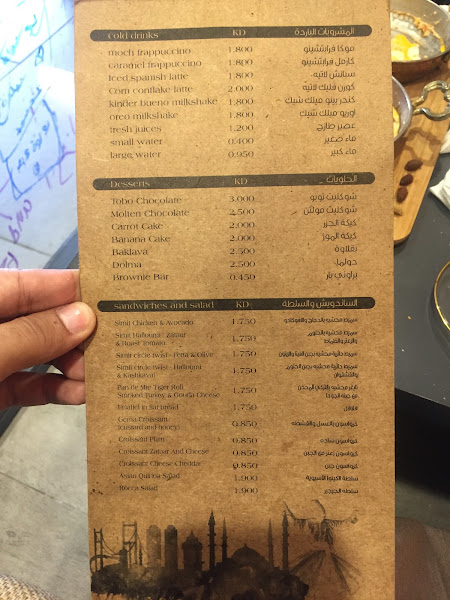 cold drinks KD المشروبات الباردة
moch frappuccino 1.800 موكا فرابتشينو
caramel frappuccino 1.800 كارمل فرابتشينو
Iced spanish latte 1.800 سبانش لاتيه
Corn conflake latte 2.000 كورن فليك لاتيه
kinder bueno milkshake 1.800 كندر بينو ميلك شيك
oreo milkshake 1.800 اوريو ميلك شيك
fresh juices 1.200 عصير طازج
small water 0.400 ماء صغير
large water 0.950 ماء كبير
Desserts KD الحلويات
Tobo Chocolate 3.000 شوكليت توبو
Molten Chocolate 2.500 شوكليت مولتن
Carrot Cake 2.000 كيكة الجزر
Banana Cake 2.000 كيكة الموز
Baklava 2.500 بقلاوة
Dolma 2.500 دولما
Brownie Bar 0.450 براوني بار
sandwiches and salad KD الساندويش والسلطة
Simit Chicken & Avocado 1.750 سميط محشو بالدجاج والافوكادو
Simit Halloumi, Zaatar
& Roast Tomato 1.750
Simit circle twist - Feta & Olive 1.750
Simit circle twist - Halloumi
& Kashkaval 1.750
Pan de Mie Tiger Roll
Smoked Turkey & Gouda Cheese 1.750
1.750 فلافل
Croissant
(custard and honey) 0.850
Croissant Plain 0.850 كرواسون ساده
Croissant Zataar And Cheese 0.850 كرواسون زعتر مع الجبن
Croissant Cheese Cheddar 0.850 كرواسون جبن
Asian Quinoa Salad 1.900 سلطة الكينوا الآسيوية
Rocca Salad 1.900 سلطة الجرجير